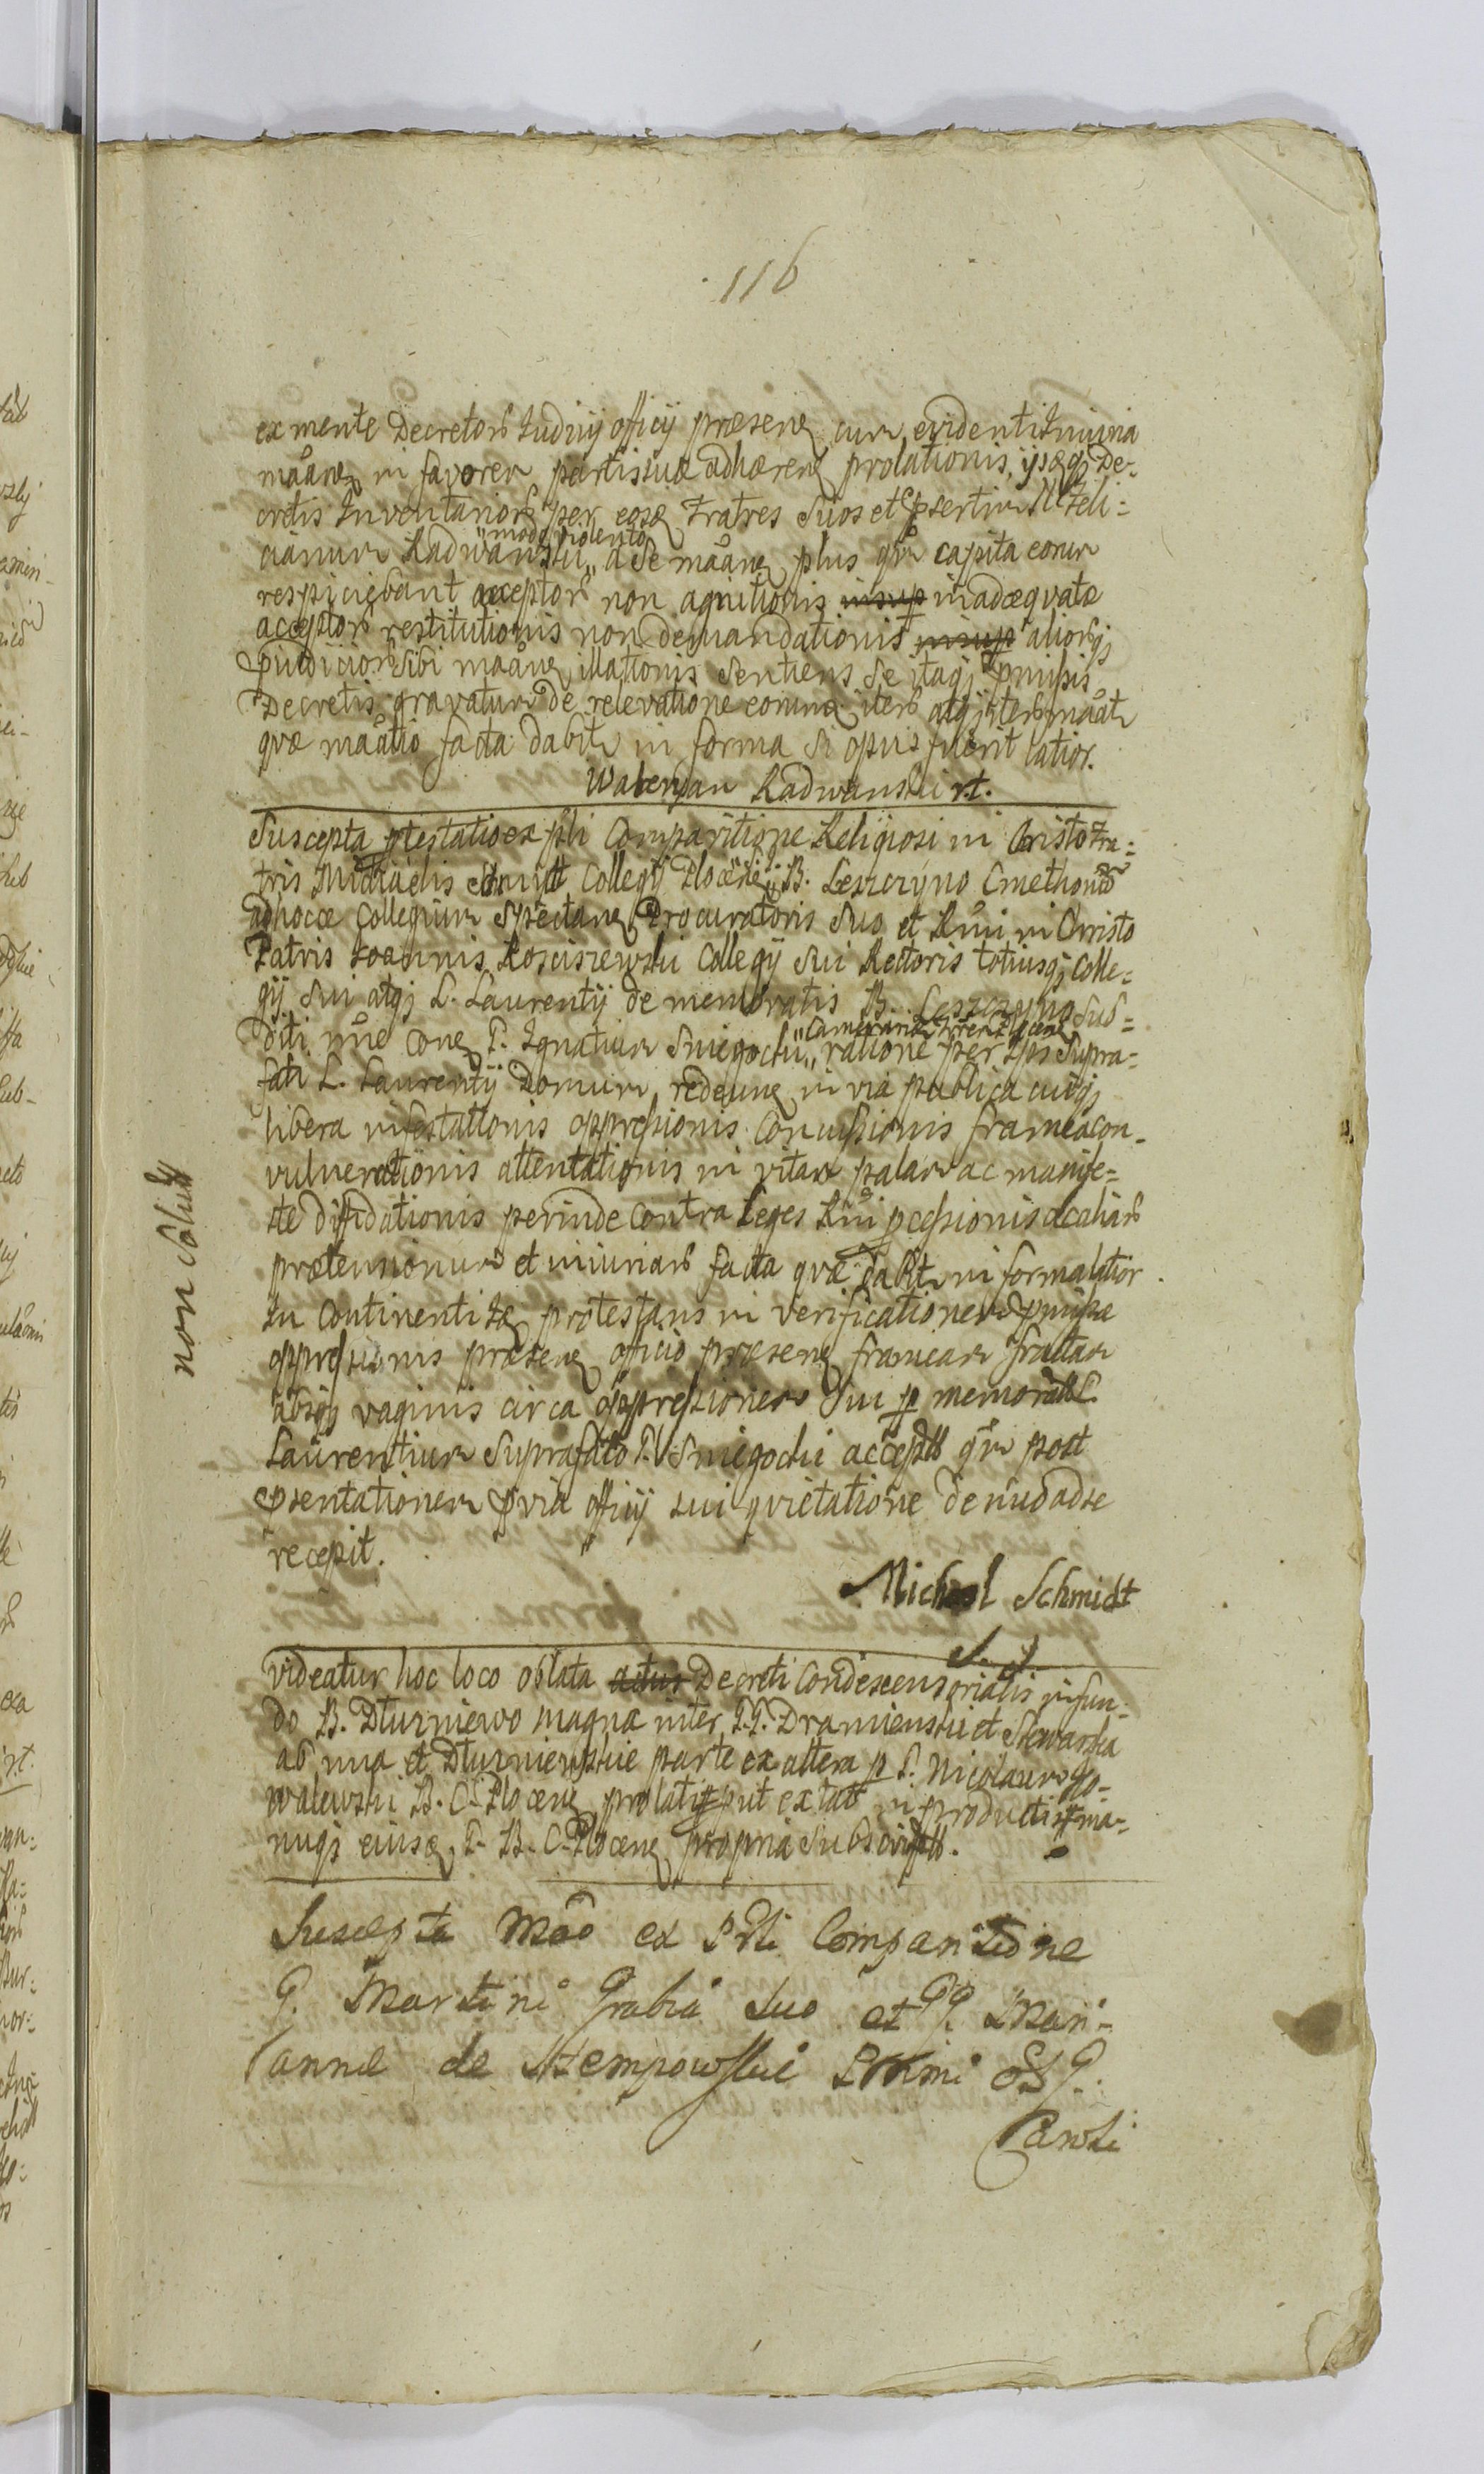 116
ex mente Decretor Judicij officij præsen cum evidenti Injuria
mãan in favorem partis suæ adhæren prolationis, ijsq De-
cretis Inventarior per eosd Fratres Suos et psertim M Feli-
modo violento
cianum Radwanski,, a Se mãan plus qm capita eorum
respiciebant acceptor non agnitionis insup inadæquatæ
acceptor restitutionis non demandationis insup aliorq
pjudicior Sibi mãan illationis Sentiens Se itaq pmissis
Decretis gravatum de relevatione eorum iter atq iter mãat
quæ mãatio facta dabit in forma Si opus fuerit latior.
Waleryan Radwanski
Suscepta ptestatio ex psli Comparitione Religiosi in Christo Fra-
tris Michaelis Collegij Plocen B. Leszczyno Cmethon
ad hocce Collegium Spectan Procuratoris Suo et Rmi in Christo
Patris Joannis Kosciszewski Collegij Sui Rectoris totiusq Colle-
gij Sui atq L. Laurentij de memoratis B. Leszczyno Sub-
Camerario Plocen
diti nne Con P. Ignatium Smigocki,, ratione per Ips Supra-
fati L. Laurentij Domum redeun in via publica cuiq
libera infestationis oppressionis Concussionis framea con-
vulnerationis attentationis in vitam palam ac manife-
ste diffidationis perinde contra Leges Rni pcessionis ac aliar
prætensionum et iniuriar facta quæ dabit in forma latior.
In Continenti Id protestans in verificationem pmissæ
oppressionis præsen officio præsen frameam fractam
absq vaginis circa oppressionem Sui p memorat L.
Laurentium Suprafato P. Smigocki accept qm post
psentationem pvia officij sui quietatione denuo ad se
recepit.
Michael Schmidt
S. J.
non solut
videatur hoc loco oblata actus Decreti Condescensorialis in fun-
do B. Dłurniewo magna inter G.G. Dramienski et Skwarska
ab una et Dłurniewskie parte ex altera p P. Nicolaum Go-
walewski B. C. Plocen prolati put extat in productis ma-
nuq eiusd P. B. C. Plocen propria Subscript.
Suscepta Mão ex Psli Comparitione
G. Martini Grabia Suo et GG. Mari-
anne de Stempowskie Primi et G.
Caroli